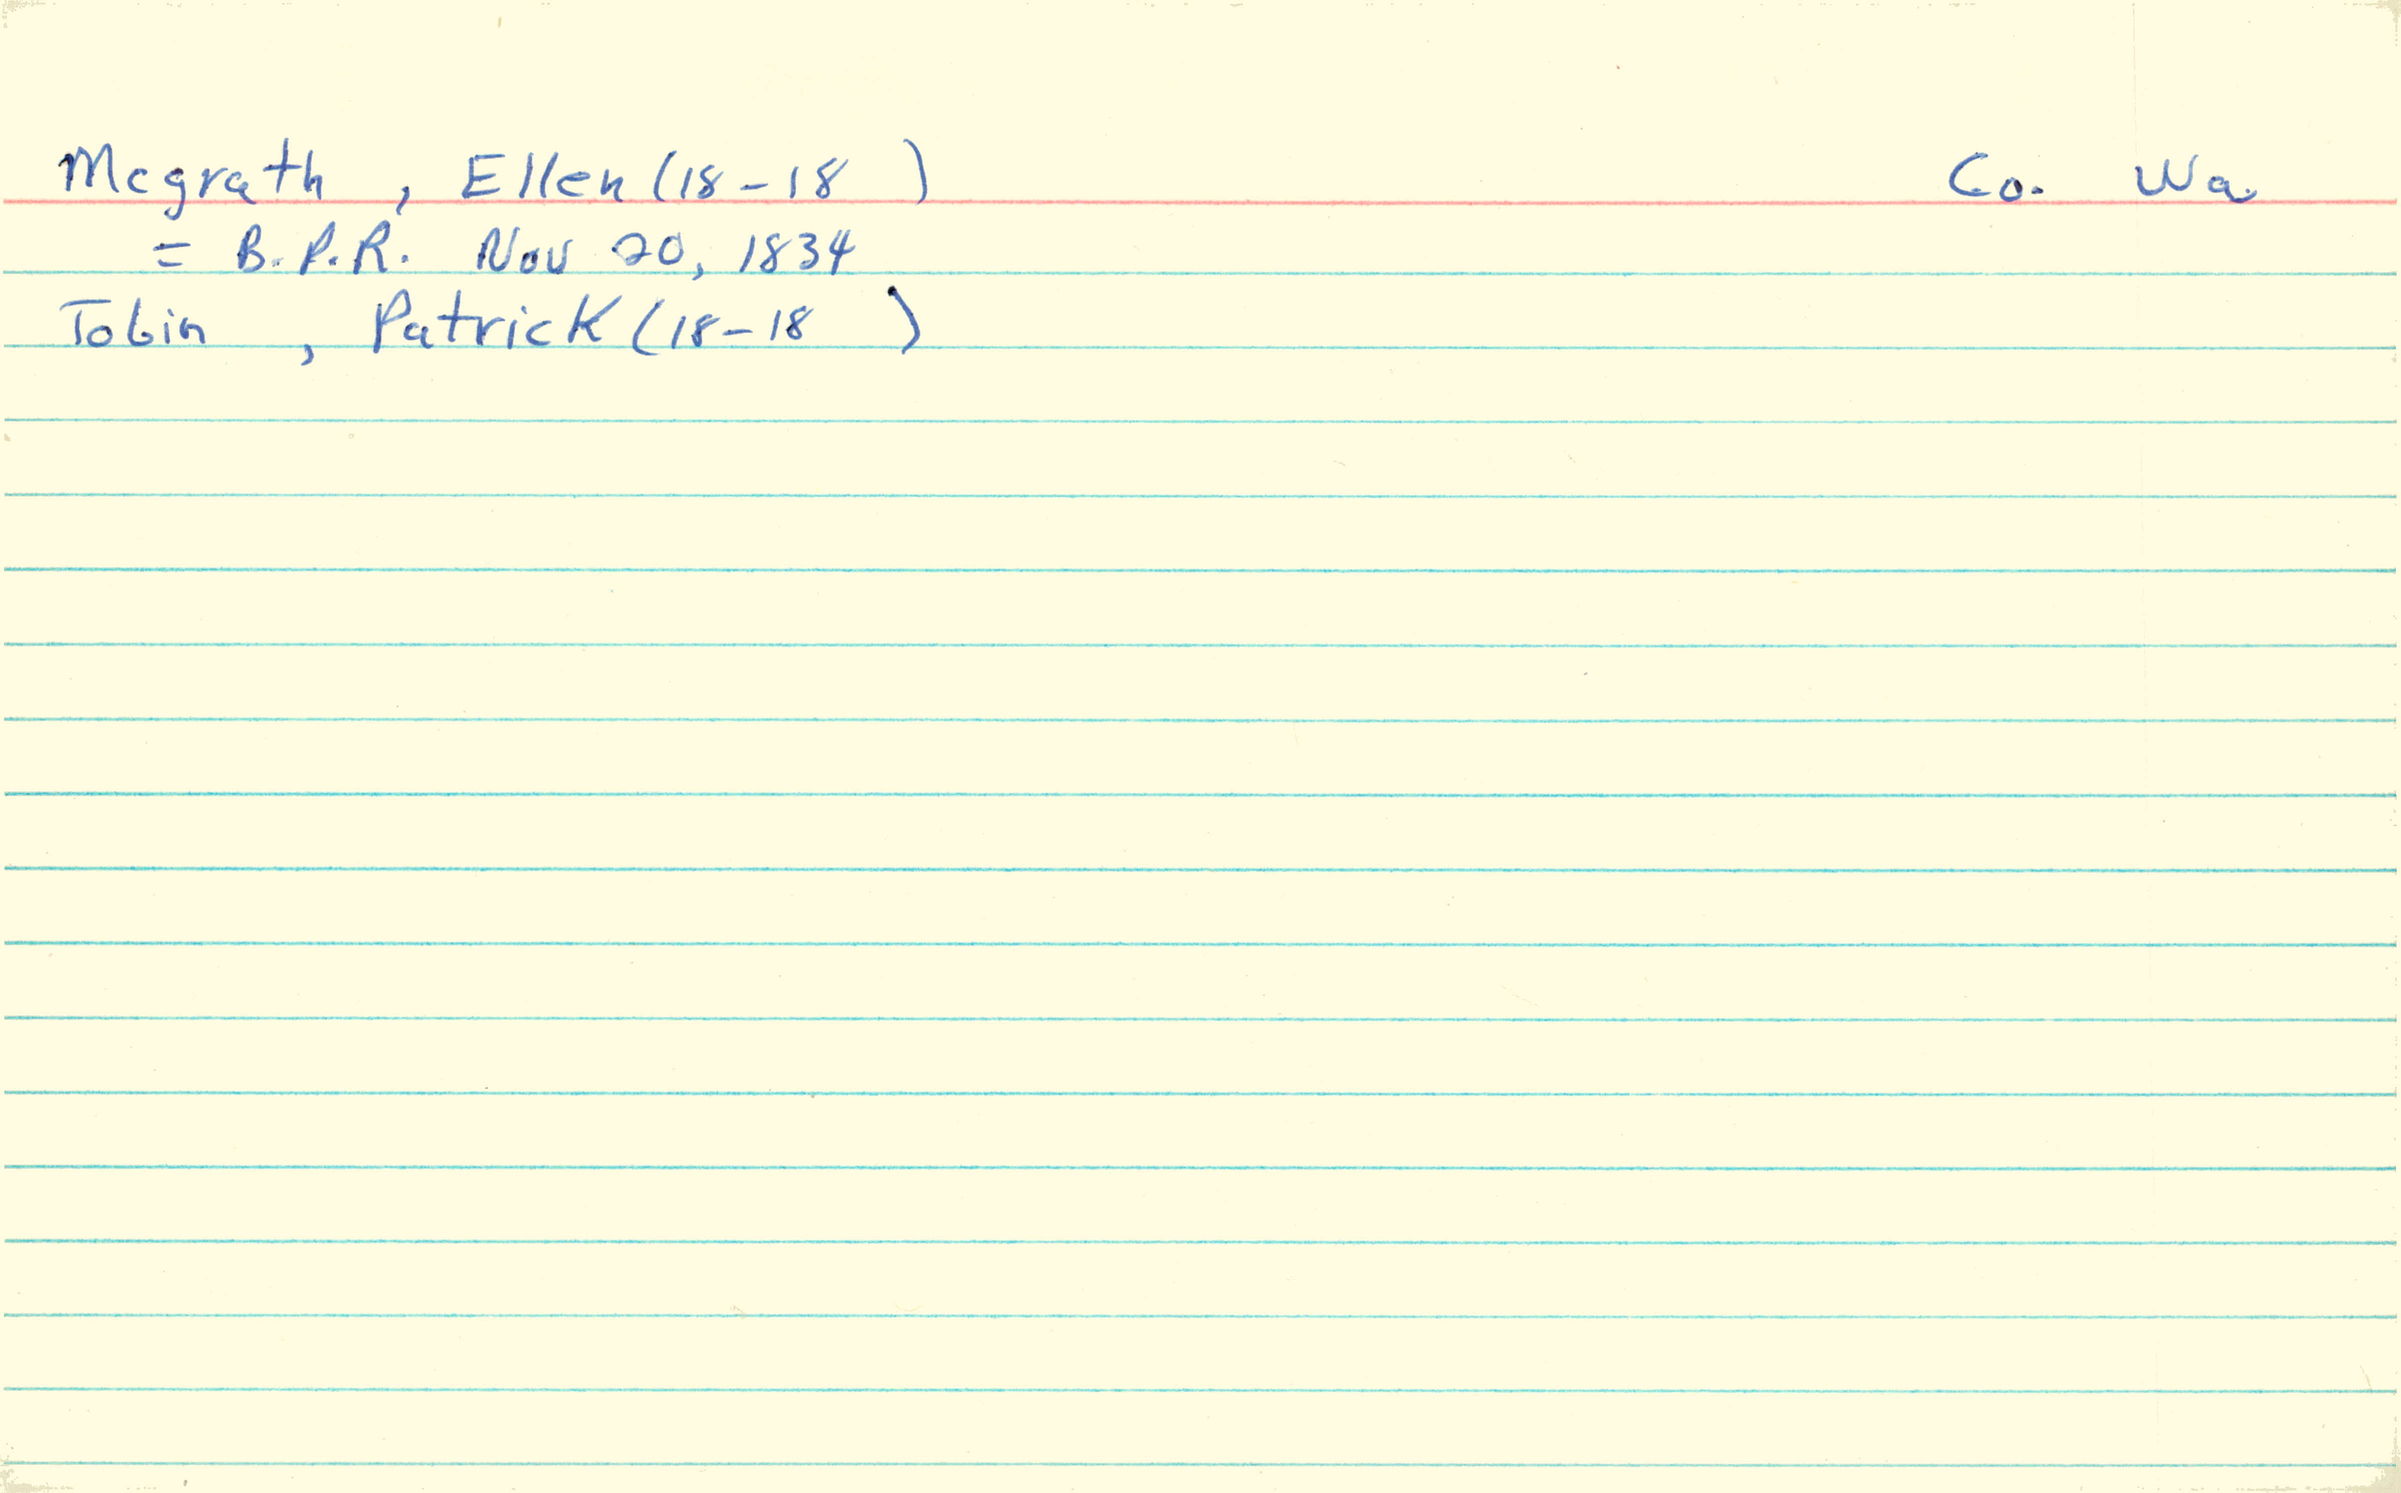 Mcgrath , Ellen (18-18 ) Co. Wa.
= B.P.R. Nov 20, 1834
Tobin , Patrick (18-18 )